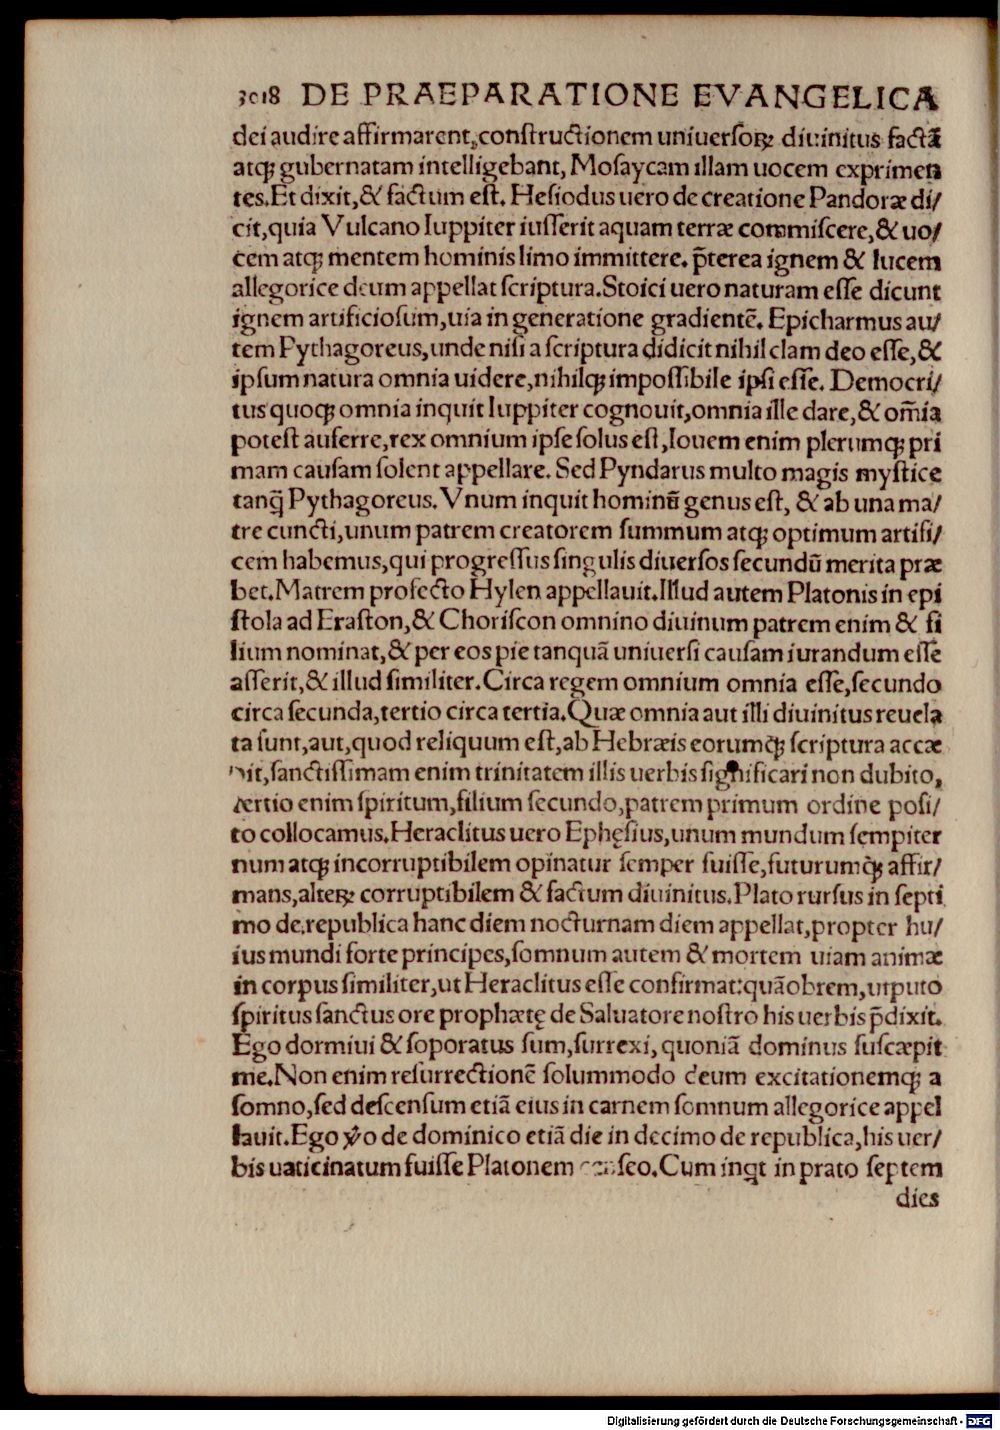 3018 DE PRAEPARATIONE EVANGELICA
dei audire affirmarent, constructionem uniuersoꝝ diuinitus factā
atqꝫ gubernatam intelligebant, Mosaycam illam uocem exprimen
tes. Et dixit, & factum est. Hesiodus uero de creatione Pandoræ di/
cit, quia Vulcano Iuppiter iusserit aquam terræ commiscere, & uo/
cem atqꝫ mentem hominis limo immittere. p̄terea ignem & lucem
allegorice deum appellat scriptura. Stoici uero naturam esse dicunt
ignem artificiosum, uia in generatione gradientē. Epicharmus au/
tem Pythagoreus, unde nisi a scriptura didicit nihil clam deo esse, &
ipsum natura omnia uidere, nihilqꝫ impossibile ipsi esse. Democri/
tus quoqꝫ omnia inquit Iuppiter cognouit, omnia ille dare, & om̄ia
potest auferre, rex omnium ipse solus est, Iouem enim plerumqꝫ pri
mam causam solent appellare. Sed Pyndarus multo magis mystice
tanq̄ Pythagoreus. Vnum inquit hominū genus est, & ab una ma/
tre cuncti, unum patrem creatorem summum atqꝫ optimum artifi/
cem habemus, qui progressus singulis diuersos secundū merita præ
bet. Matrem profecto Hylen appellauit. Illud autem Platonis in epi
stola ad Eraston, & Choriscon omnino diuinum patrem enim & fi
lium nominat, & per eos pie tanquā uniuersi causam iurandum esse
asserit, & illud similiter. Circa regem omnium omnia esse, secundo
circa secunda, tertio circa tertia. Quæ omnia aut illi diuinitus reuela
ta sunt, aut, quod reliquum est, ab Hebræis eorumq̄ꝫ scriptura accæ
pit, sanctissimam enim trinitatem illis uerbis significari non dubito,
tertio enim spiritum, filium secundo, patrem primum ordine posi/
to collocamus. Heraclitus uero Ephęsius, unum mundum sempiter
num atqꝫ incorruptibilem opinatur semper fuisse, futurumq̄ꝫ affir/
mans, alteꝝ corruptibilem & factum diuinitus. Plato rursus in septi
mo de republica hanc diem nocturnam diem appellat, propter hu/
ius mundi forte principes, somnum autem & mortem uiam animæ
in corpus similiter, ut Heraclitus esse confirmat: quāobrem, ut puto
spiritus sanctus ore prophætę de Saluatore nostro his uerbis p̄dixit.
Ego dormiui & soporatus sum, surrexi, quoniā dominus suscæpit
me. Non enim resurrectionē solummodo deum excitationemqꝫ a
somno, sed descensum etiā eius in carnem somnum allegorice appel
lauit. Ego ꝟo de dominico etiā die in decimo de republica, his uer/
bis uaticinatum fuisse Platonem censeo. Cum inqt in prato septem
dies
Digitalisierung gefördert durch die Deutsche Forschungsgemeinschaft - DFG